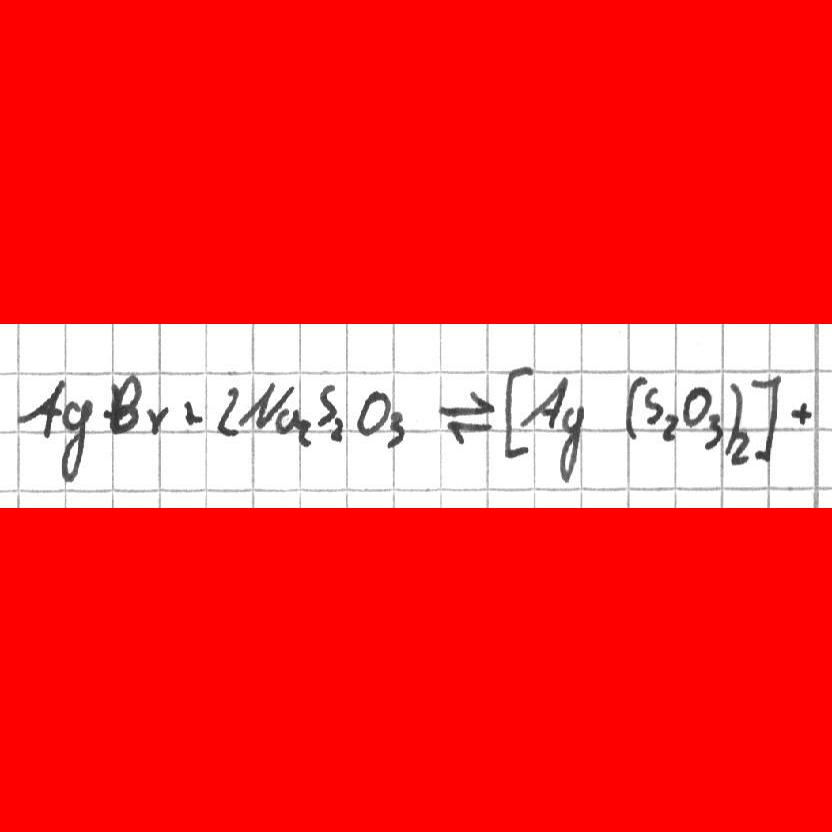 AgBr + 2Na₂S₂O₃ ⇌ [Ag (S₂O₃)₂] +